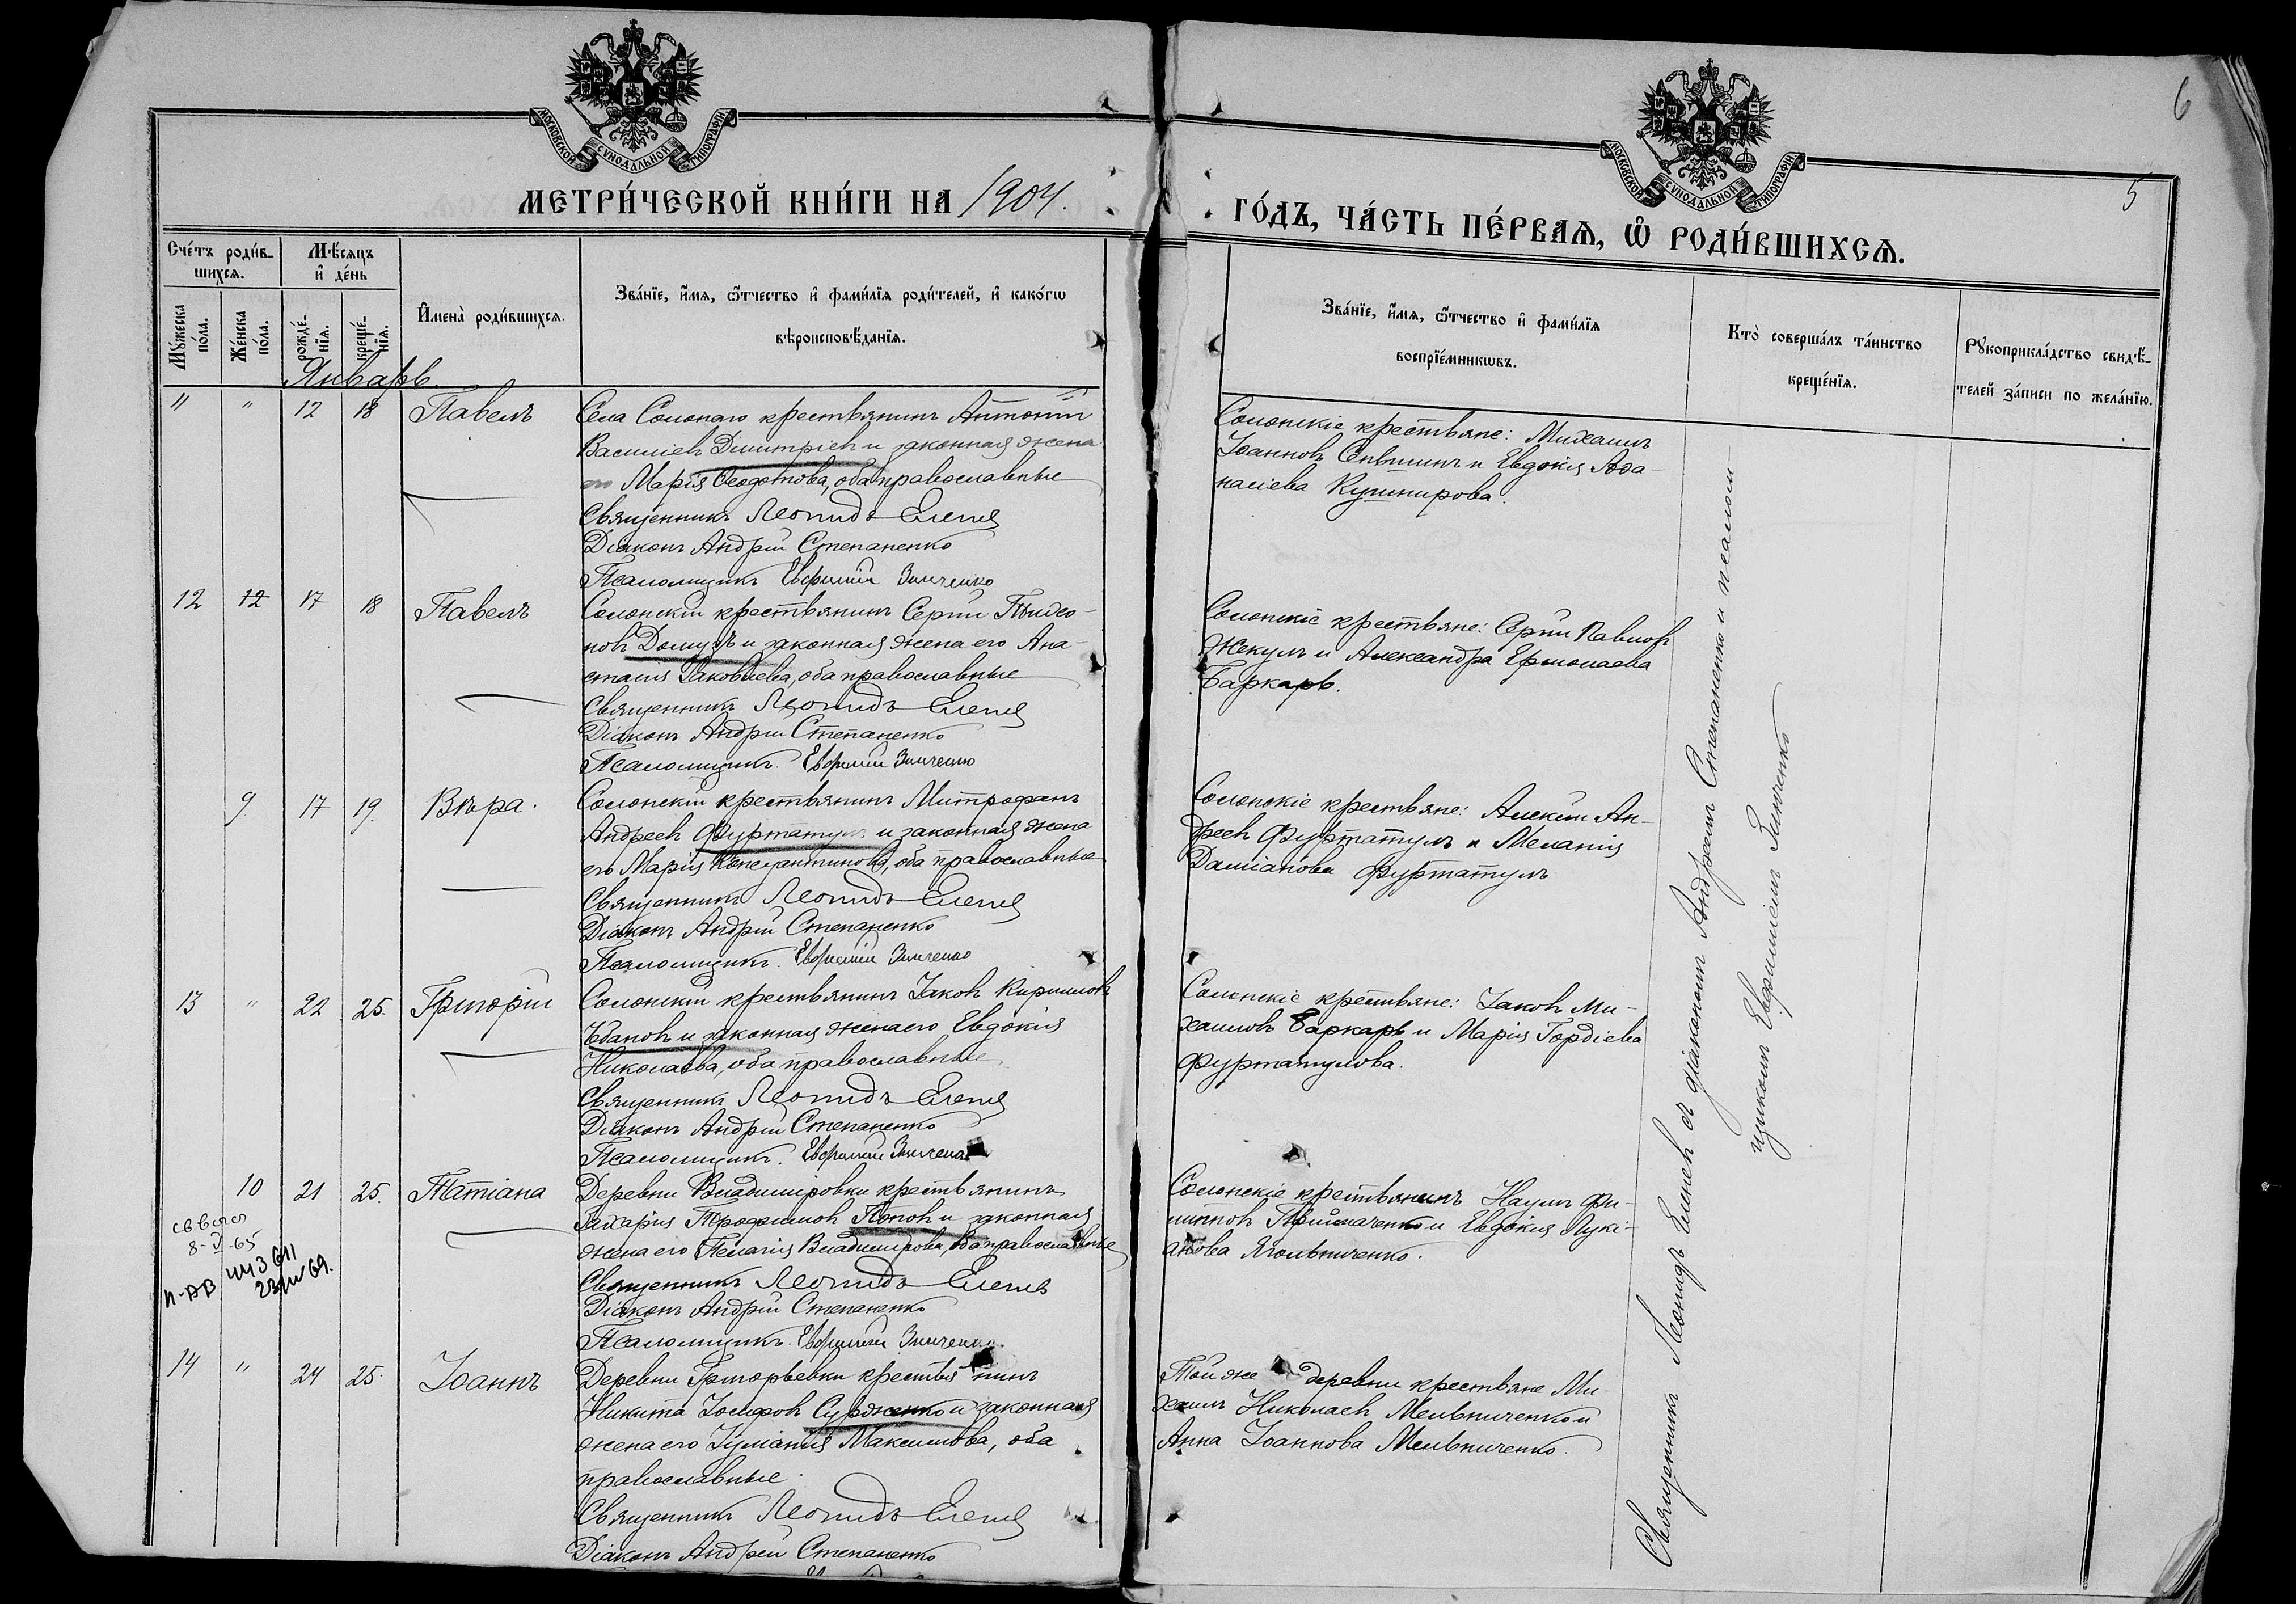 6
5
МОСКОВСКОЙ СѴНОДАЛЬНОЙ ТИПОГРАФІИ
МОСКОВСКОЙ СѴНОДАЛЬНОЙ ТИПОГРАФІИ
МЕТРИ́ЧЕСКОЙ КНИ́ГИ НА 1904.
ГО́ДЪ, ЧА́СТЬ ПЕ́РВАѦ, Ѡ҆ РОДИ́ВШИХСѦ.
Сче́тъ роди́в-
шихсѧ.
Мꙋ́жеска
по́ла.
Же́нска
по́ла.
Мѣ́сѧцъ
и҆ де́нь
рожде́-
нїѧ.
креще́-
нїѧ.
И҆мена̀ роди́вшихсѧ.
Зва́нїе, и҆́мѧ, ѻ҆́тчество и҆ фами́лїѧ роди́телей, и҆ како́гѡ
вѣроисповѣ́данїѧ.
Зва́нїе, и҆́мѧ, ѻ҆́тчество и҆ фами́лїѧ
воспрїе́мникѡвъ.
Кто̀ соверша́лъ та́инство
креще́нїѧ.
Рꙋкоприкла́дство свидѣ́-
телей за́писи по жела́нїю.
Январь.
" " 12 18 Павелъ
Села Солонаго крестьянинъ Антоній
Василіевъ Димитріевъ и законная жена
его Марія Ѳеодотова, оба православные
Священникъ Леонидъ Еленевъ
Діаконъ Андрей Степаненко
Псаломщикъ Евфимій Зинченко
Солонскіе крестьяне: Михаилъ
Іоанновъ Сельминъ и Евдокія Аѳа-
насіева Кушнирова.
12 12 17 18 Павелъ
Солонскій крестьянинъ Сергій
новъ и законная жена его Ана-
стасія Іаковлева, оба православные
Священникъ Леонидъ Еленевъ
Діаконъ Андрей Степаненко
Псаломщикъ. Евфимій Зинченко
Солонскіе крестьяне: Сергій Павловъ
Жекулъ и Александра Ермолаева
Баркарь.
9 17 19. Вѣра.
Солонскій крестьянинъ Митрофанъ
Андреевъ Фуртатулъ и законная жена
его Марія Константинова, оба православные
Священникъ Леонидъ Еленевъ
Діаконъ Андрей Степаненко
Псаломщикъ. Евфимій Зинченко
Солонскіе крестьяне: Алексій Ан-
дреевъ Фуртатулъ и Меланія
Даміанова Фуртатулъ
13 " 22 25. Григорій
Солонскій крестьянинъ Іаковъ Кирилловъ
и законная жена его Евдокія
Николаева, оба православные
Священникъ Леонидъ Еленевъ
Діаконъ Андрей Степаненко
Псаломщикъ. Евфимій Зинченко
Солонскіе крестьяне: Іаковъ Ми-
хаиловъ Баркарь и Марія Гордіева
Фуртатулова.
10 21 25. Татіана
Деревни Владиміровки крестьянинъ
Захарія Трофимовъ Поповъ и законная
жена его Пелагія Владимірова, оба православные
Священникъ Леонидъ Еленевъ
Діаконъ Андрей Степаненко
Псаломщикъ. Евфимій Зинченко.
8-V-65
443611
Солонскіе крестьянинъ Наумъ Фи-
липповъ Приймаченко и Евдокія Луки-
анова
14 " 24 25. Іоаннъ
Деревни Григорьевки крестьянинъ
Никита Іосифовъ Сурженко и законная
жена его Іуліанія Максимова, оба
православные.
Священникъ Леонидъ Еленевъ
Діаконъ Андрей Степаненко
Той же деревни крестьяне Ми-
хаилъ Николаевъ Мельниченко и
Анна Іоаннова Мельниченко.
Священникъ Леонидъ Еленевъ съ діакономъ Андреемъ Степаненко и псалом-
щикомъ Евфиміемъ Зинченко